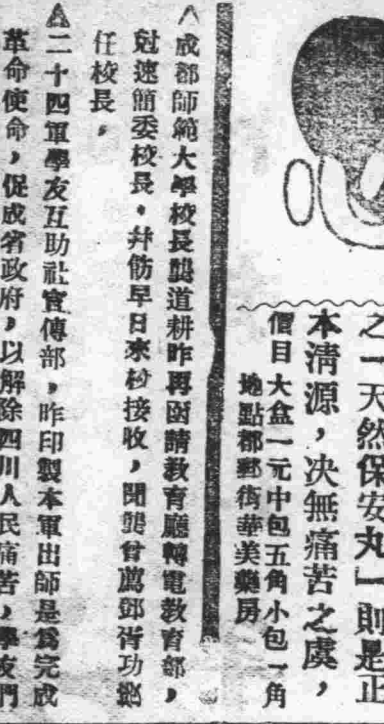 之一天然保安丸」則是正
本清源，决無痛苦之虞，
價目大盒一元中包五角小包一角
地點都郵街華美藥房
△成都師範大學校長龔道耕昨再函請教育廳轉電教育部，
尅速簡委校長，幷飭早日來校接收，聞龔曾薦鄧胥功繼
任校長，
△二十四軍學友互助社宣傳部，昨印製本軍出師是爲完成
革命使命，促成省政府，以解除四川人民痛苦，學友門